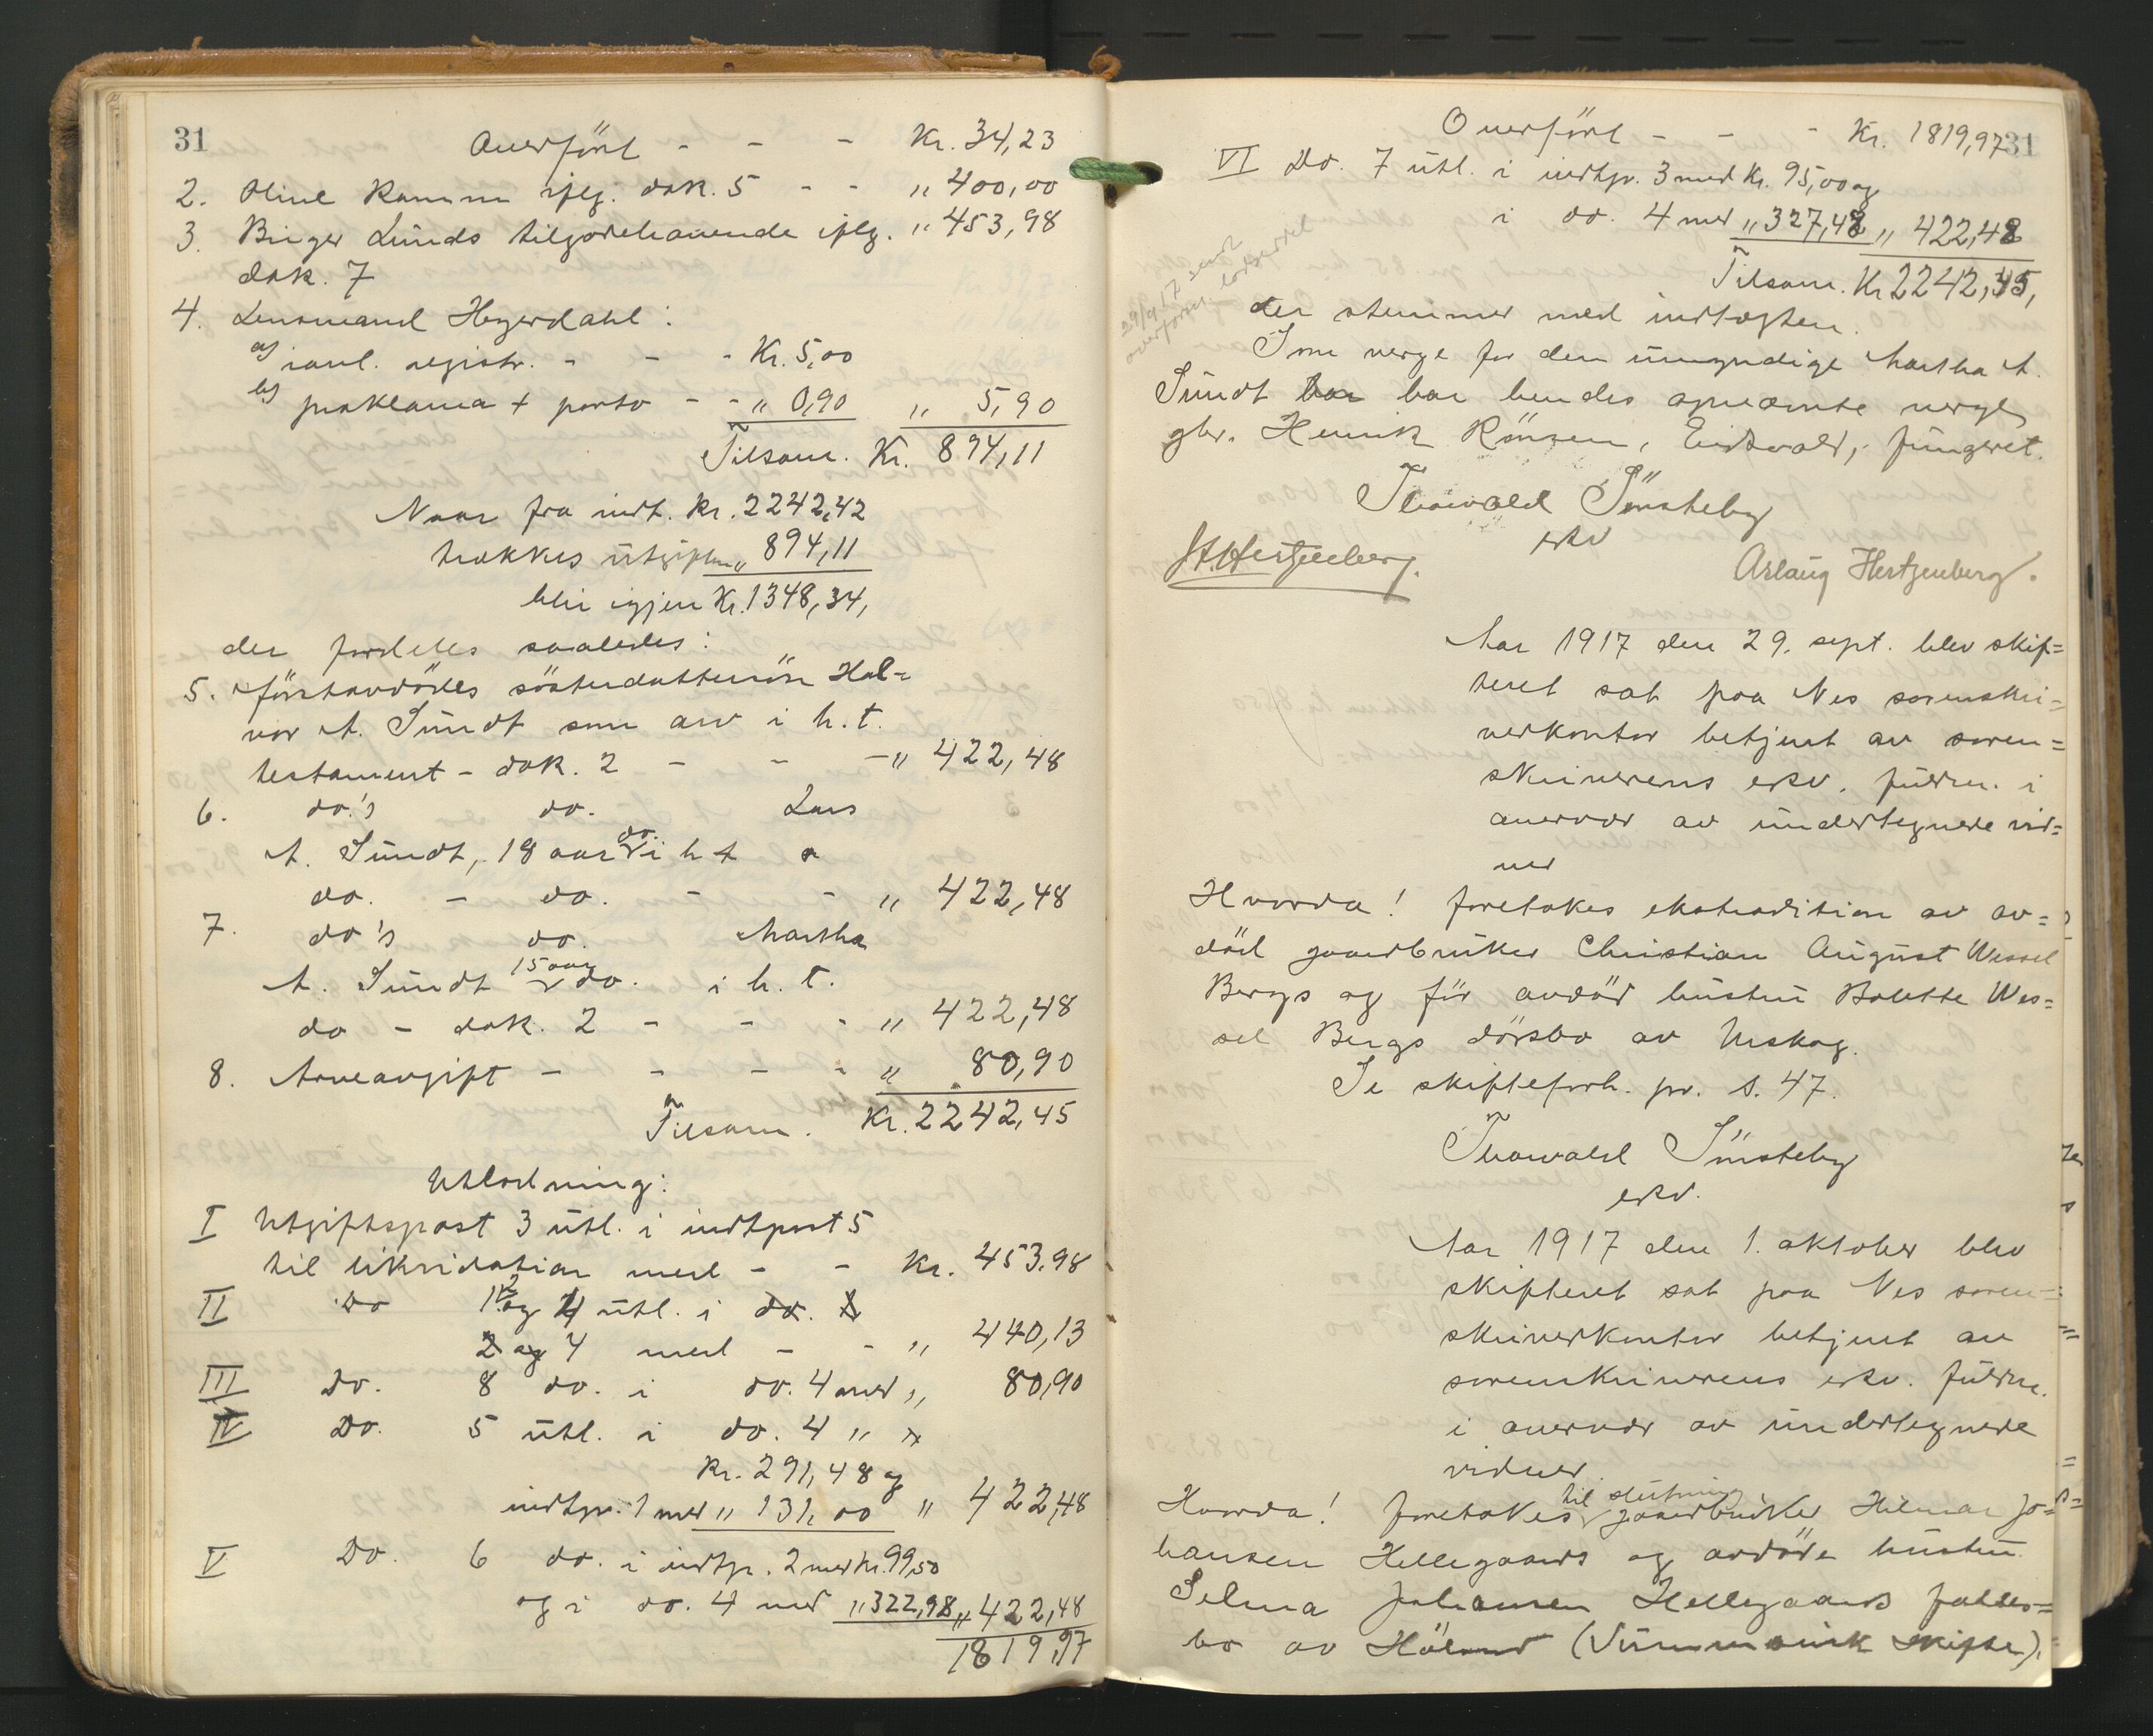 31
Overført - - - Kr. 34,23
2. Oline Ramm iflg. dok. 5 - - " 400,00
3. Birger Lunds tilgodehavende iflg. " 453,98
dok. 7
4. Lensmand Heyerdahl:
a) saml. registr. - - - Kr. 5,00
b) proklama + porto - - " 0,90 " 5,90
Tilsam. Kr. 894,11
Naar fra indt. Kr. 2242,42
trækkes utgiften " 894,11
blir igjen Kr. 1348,34,
der fordeles saaledes:
5. Førstavdødes søsterdattersøn Hal-
vor A. Sundt som arv i h. t.
testament - dok. 2 - - -" 422,48
6. do.'s do. Lars
A. Sundt, 18 aar do. i h t
do. - do. - - " 422,48
7. do's do. Martha
A. Sundt 15 aar do. i h. t.
do - dok. 2 - - - " 422,48
8. Arveavgift - - - - " 80,90
Tilsam. Kr. 2242,45
Utlodning:
I Utgiftspost 3 utl. i indtpost 5
til likvidation med - - Kr. 453.98
II Do 1, 2 og 4 utl. i do.
2 og 4 med - - " 440,13
III Do. 8 do. i do. 4 med " 80,90
IV Do. 5 utl. i do. 4 "
Kr. 291,48 og
indtp. 1 med " 131,00 " 422,48
V Do. 6 do. i indtp. 2 med kr. 99,50
og i do. 4 med " 322,98 " 422,48
1819,97
Overført - - - Kr. 1819,97
31
VI Do. 7 utl. i indtp. 3 med Kr. 95,00 og
i do. 4 med " 327,48 " 422,48
Tilsam. Kr 2242,45,
29/9 17 sendt
overform.
der stemmer med indtægten.
Som verge for den umyndige Martha A.
Sundt har hendes opnævnte verge
gbr. Henrik Rönsen, Eidsvold, fungeret.
Thorvald Sönsteby
eksv
H. Hertzenberg.
Aslaug Hertzenberg.
Aar 1917 den 29. sept. blev skif=
teret sat paa Nes sorenskri=
verkontor betjent av soren=
skriverens eksv. fuldm. i
overvær av undertegnede vid=
ner
Hvorda! foretokes ekstradition av av=
død gaardbruker Christian August Wessel
Bergs og før avdød hustru Bolette Wes=
sel Bergs dødsbo av Urskog.
Se skifteforh. pr. s. 47.
Thorvald Sönsteby
eksv.
Aar 1917 den 1. oktober blev
skifteret sat paa Nes soren=
skriverkontor betjent av
sorenskriverens eksv. fuldm.
i overvær av undertegnede
vidner.
Hvorda! foretokes til slutning gaardbruker Hilmar Jo=
hansen Hellegaards og avdøde hustru
Selma Johansen Hellegaards fælles=
bo av Höland (Summarisk skifte).